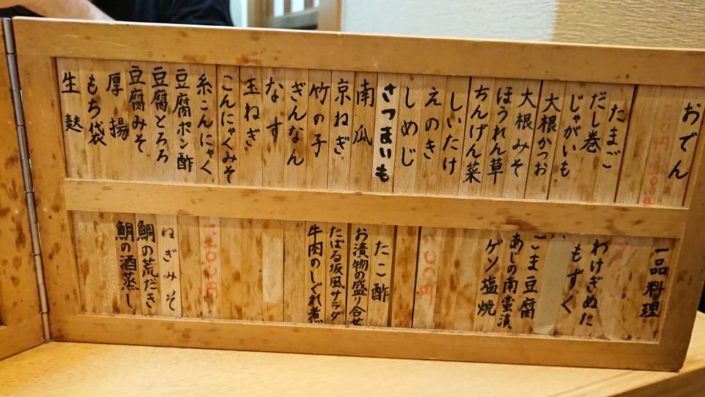 おでん
たまご
だし巻
じゃがいも
大根かつお
大根みそ
ほうれん草
ちんげん菜
しいたけ
えのき
しめじ
さつまいも
南瓜
京ねぎ
竹の子
ぎんなん
なす
玉ねぎ
こんにゃくみそ
糸こんにゃく
豆腐ポン酢
豆腐とろろ
豆腐みそ
厚揚
もち袋
生麩
一品料理
わけぎぬた
もずく
ごま豆腐
あじの南蛮漬
ゲソ塩焼
たこ酢
お漬物の盛り合せ
たばる坂風サラダ
牛肉のしぐれ煮
ねぎみそ
鯛の荒だき
鯛の酒蒸し